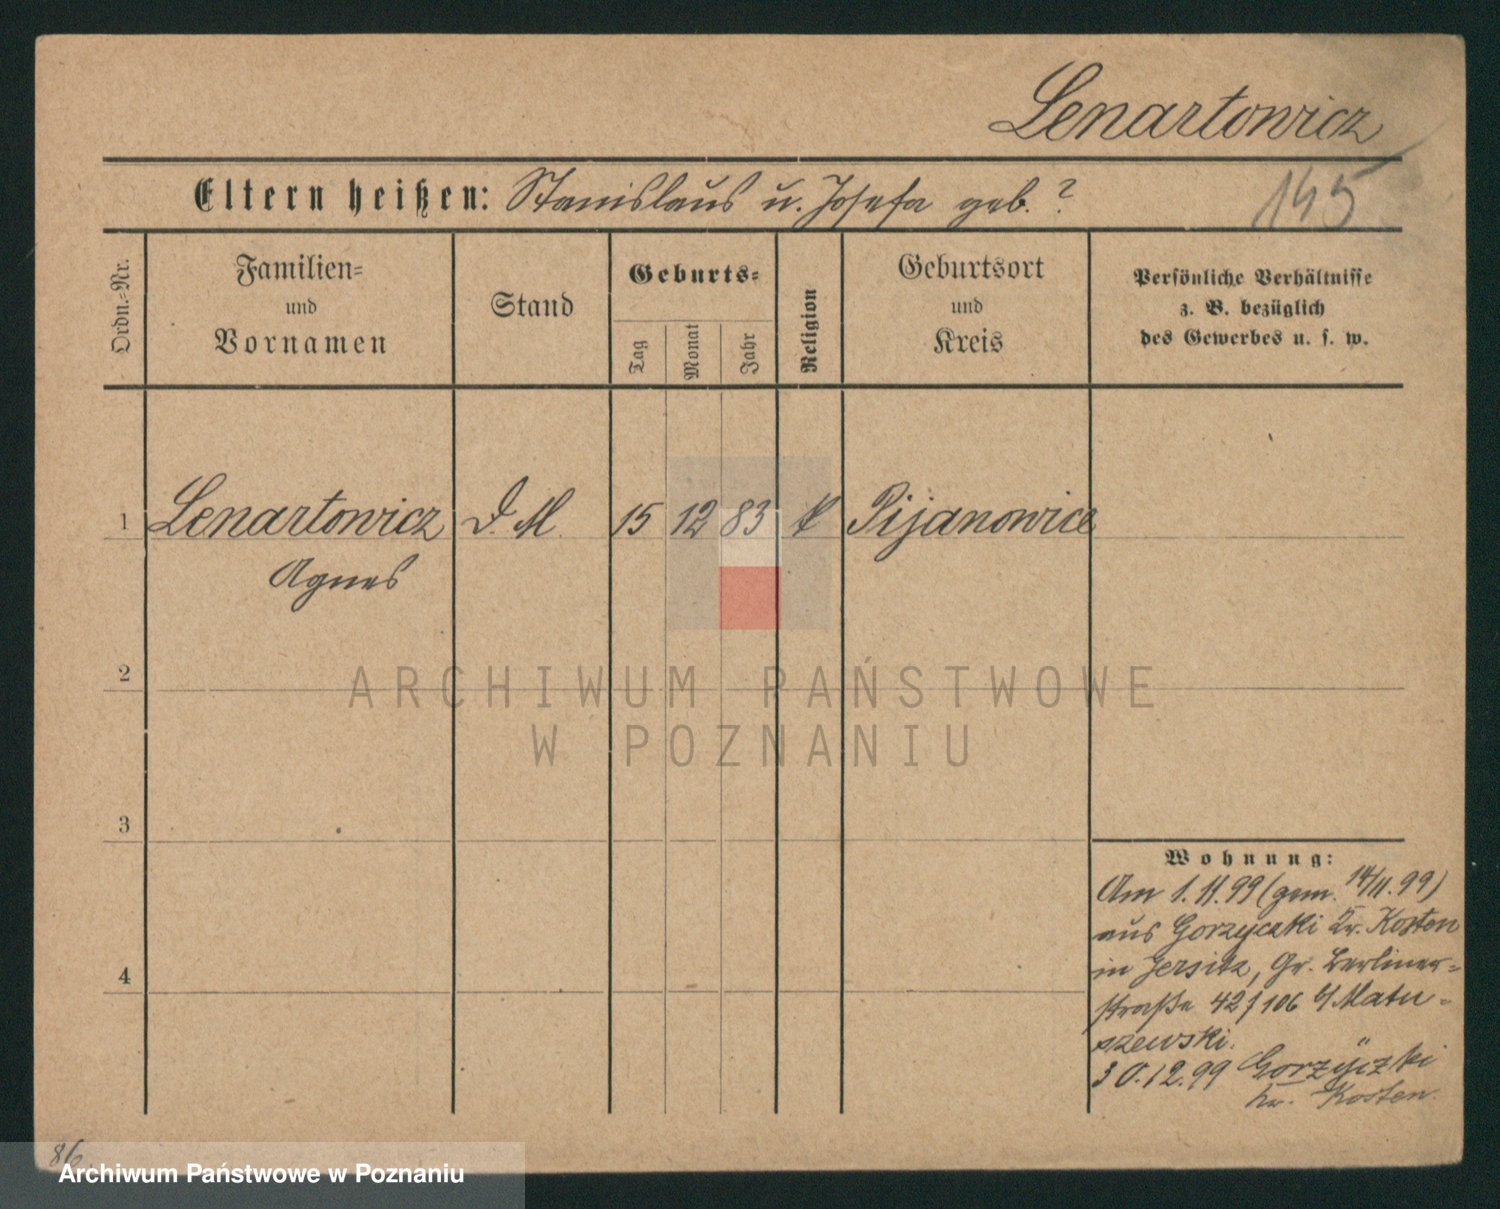 Lenartowicz
Eltern heißen: Stanislaus u. Josefa geb. ?
145
Ordn.-Nr.
Familien-
und
Vornamen
Stand
Geburts-
Tag
Monat
Jahr
Religion
Geburtsort
und
Kreis
Persönliche Verhältnisse
z. B. bezüglich
des Gewerbes u. s. w.
1 Lenartowicz D. M. 15 12 83 k Pijanowice
Agnes
2
ARCHIWUM PAŃSTWOWE
W POZNANIU
3
Wohnung:
Am 1.11.99 (gem. 14/11.99)
aus Gorzyczki Kr. Kosten
in Jersitz, Gr. Berliner-
straße 42/106 b/Matu-
szewski.
4
30.12.99 Gorzyczki
Kr. Kosten.
86
Archiwum Państwowe w Poznaniu